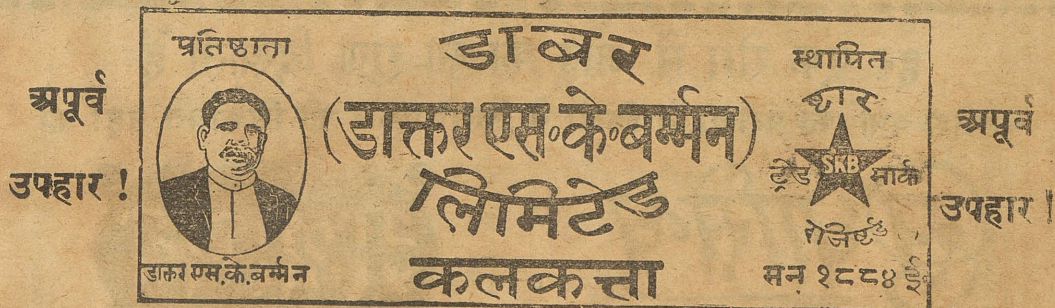 अपूर्व
उपहार !
प्रतिष्ठाता
डाक्तर एस.के.बर्म्मन
डाबर
(डाक्तर एस॰के॰बर्म्मन)
लिमिटेड
कलकत्ता
स्थापित
ष्टार
SKB
ट्रेड मार्क
रेजिष्टर्ड
सन् १८८४ ई
अपूर्व
उपहार !